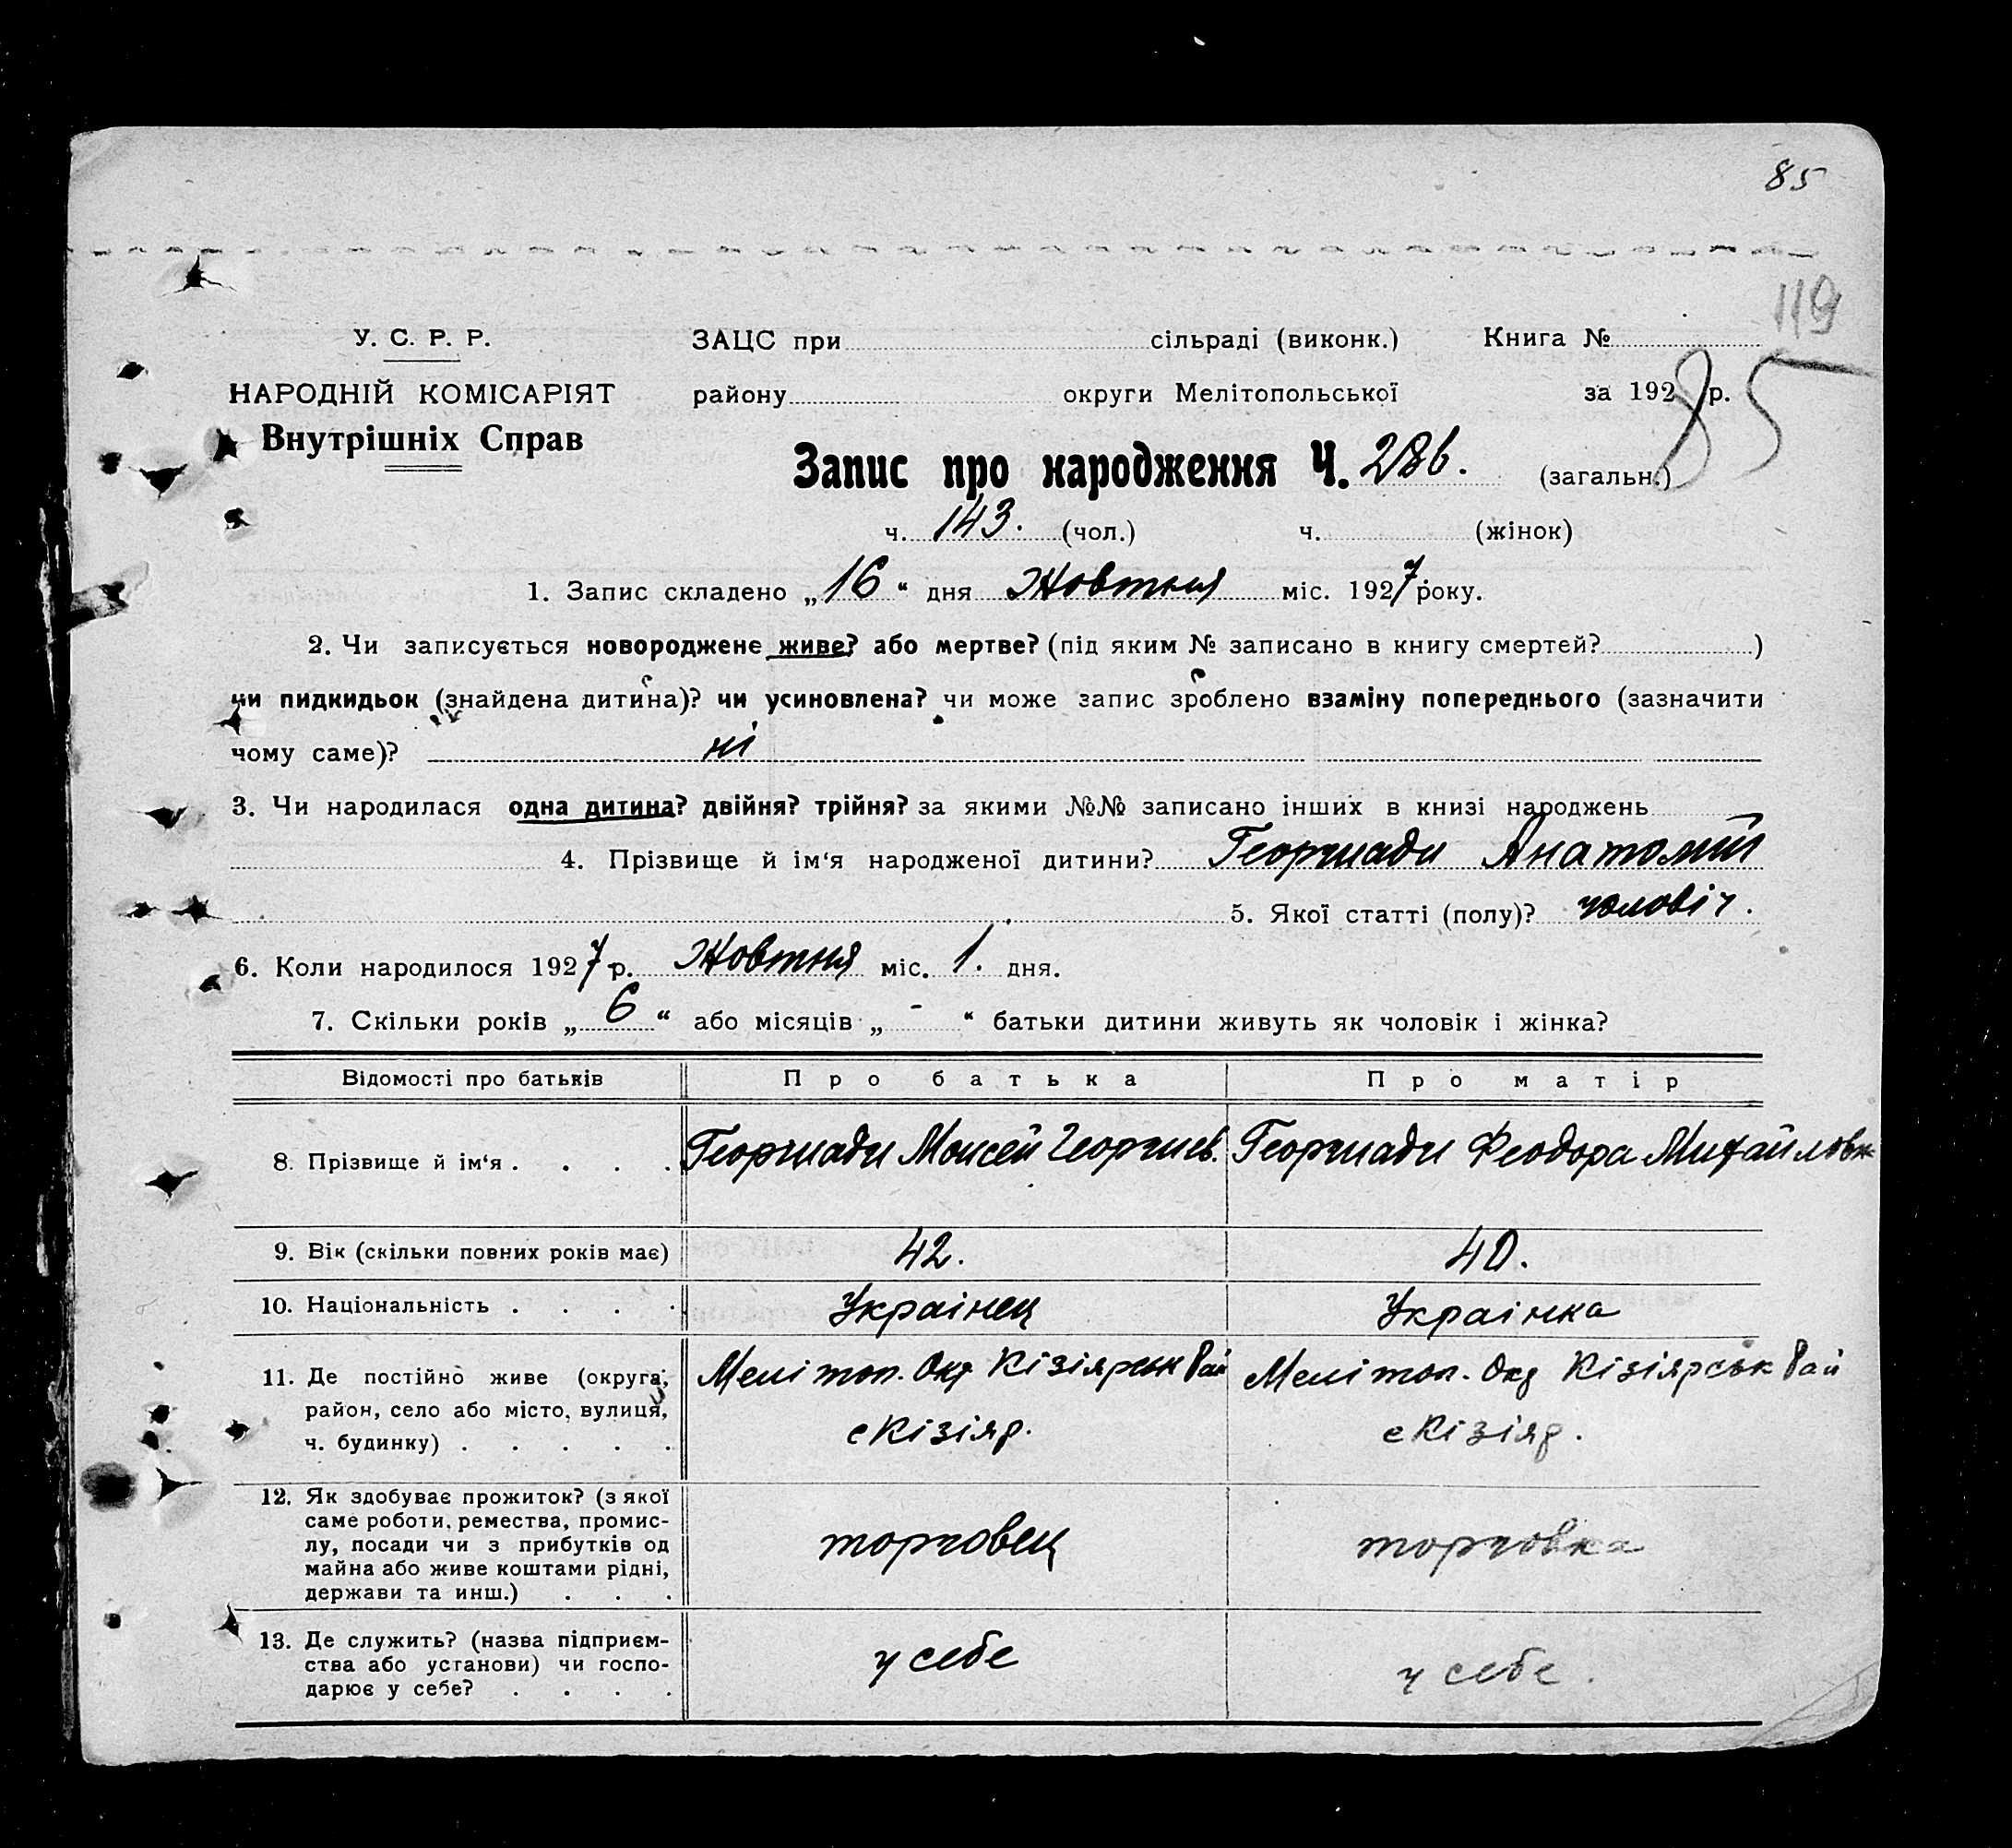 85
119
У. С. Р. Р. ЗАЦС при сільраді (виконк.) Книга №
НАРОДНІЙ КОМІСАРІЯТ району округи Мелітопольської за 192 р. 85
Внутрішніх Справ
Запис про народження Ч. 286. (загальн.)
ч. 143. (чол.) ч. (жінок)
1. Запис складено „16“ дня Жовтня міс. 1927 року.
2. Чи записується новороджене живе? або мертве? (під яким № записано в книгу смертей? )
чи пидкидьок (знайдена дитина)? чи усиновлена? чи може запис зроблено взаміну попереднього (зазначити
чому саме)? ні
3. Чи народилася одна дитина? двійня? трійня? за якими №№ записано інших в книзі народжень
4. Прізвище й ім‘я народженої дитини? Георгиади Анатолій
5. Якої статті (полу)? чоловіч.
6. Коли народилося 1927 р. Жовтня міс. 1. дня.
7. Скільки років „6“ або місяців „-“ батьки дитини живуть як чоловік і жінка?
Відомості про батьків Про батька Про матір
8. Прізвище й ім‘я . . . . Георгиади Моисей Георгиев. Георгиади Феодора Михайловн
9. Вік (скільки повних років має) 42. 40.
10. Національність . . . . Украінец Украінка
11. Де постійно живе (округа, Мелітоп. Окр Кізіярськ Рай Мелітоп. Окр Кізіярськ Рай
район, село або місто, вулиця, с Кізіяр. с Кізіяр.
ч. будинку) . . . . .
12. Як здобуває прожиток? (з якої
саме роботи, ремества, промис-
лу, посади чи з прибутків од торговец торговка
майна або живе коштами рідні,
держави та инш.) . . .
13. Де служить? (назва підприєм-
ства або установи) чи госпо- у себе у себе.
дарює у себе? . . . .